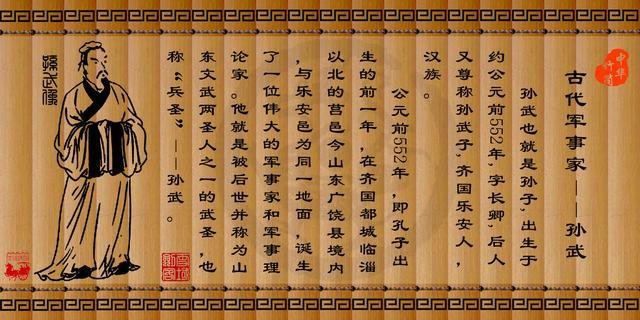 中华
竹简
古代军事家——孙武
孙武也就是孙子,出生于
约公元前552年,字长卿,后人
又尊称孙武子,齐国乐安人,
汉族。
公元前552年,即孔子出
生的前一年,在齐国都城临淄
以北的莒邑今山东广饶县境内
,与乐安邑为同一地面,诞生
了一位伟大的军事家和军事理
论家。他就是被后世并称为山
东文武两圣人之一的武圣,也
称“兵圣”——孙武。
孫武像